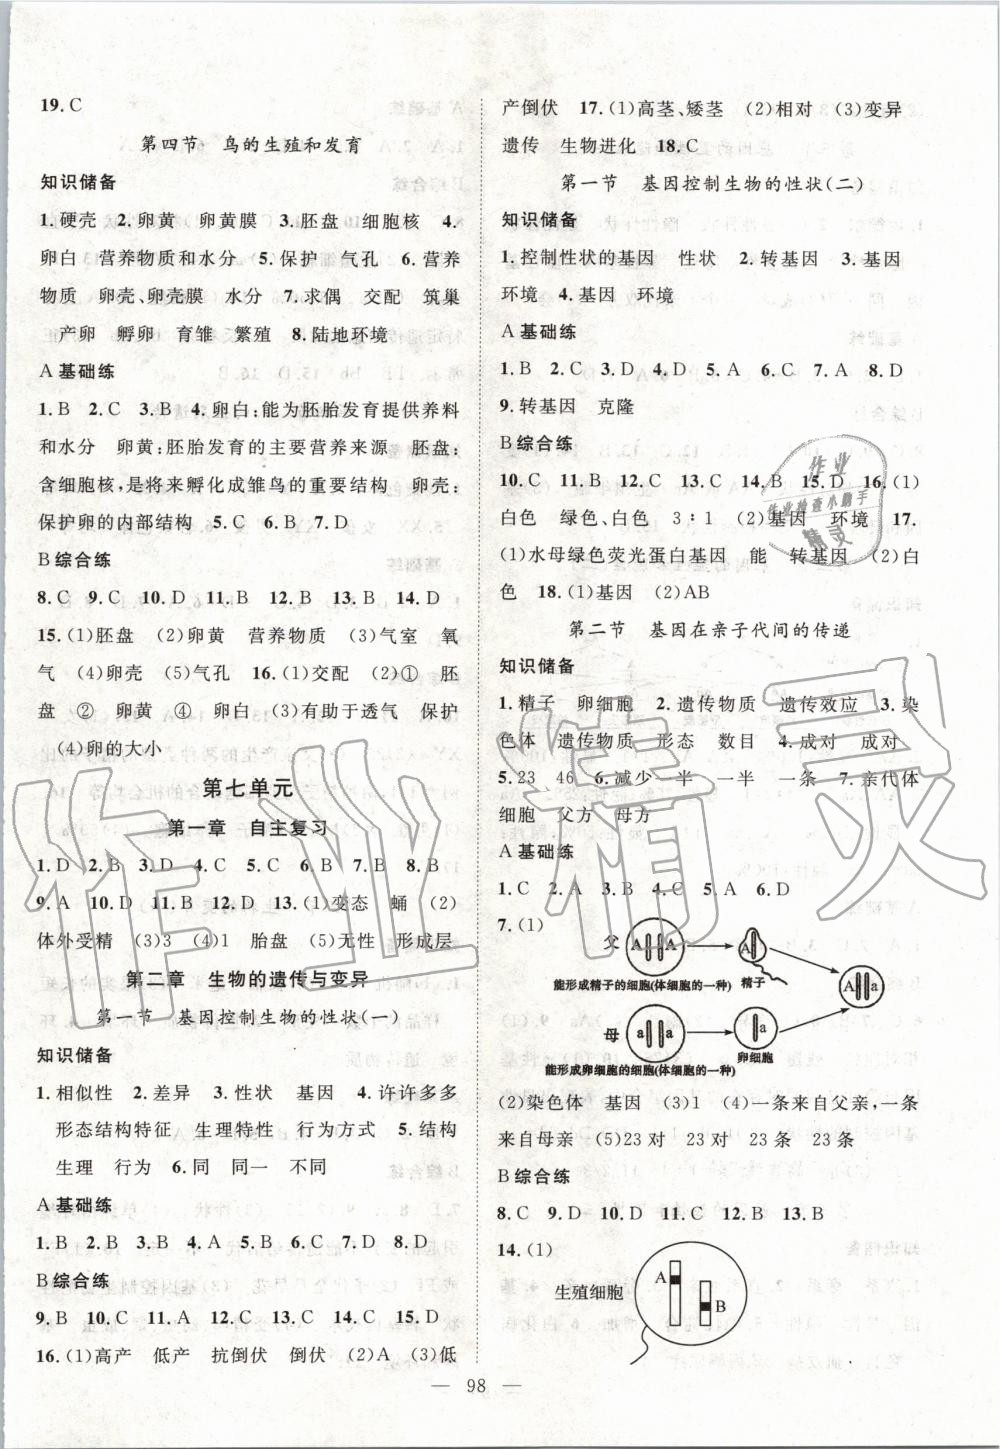 19. C
第四节 鸟的生殖和发育
知识储备
1. 硬壳 2. 卵黄 卵黄膜 3. 胚盘 细胞核 4.
卵白 营养物质和水分 5. 保护 气孔 6. 营养
物质 卵壳、卵壳膜 水分 7. 求偶 交配 筑巢
产卵 孵卵 育雏 繁殖 8. 陆地环境
A 基础练
1. B 2. C 3. B 4. 卵白:能为胚胎发育提供养料
和水分 卵黄:胚胎发育的主要营养来源 胚盘:
含细胞核,是将来孵化成雏鸟的重要结构 卵壳:
保护卵的内部结构 5. C 6. B 7. D
B 综合练
8. C 9. C 10. D 11. B 12. B 13. B 14. D
15. (1)胚盘 (2)卵黄 营养物质 (3)气室 氧
气 (4)卵壳 (5)气孔 16. (1)交配 (2)① 胚
盘 ② 卵黄 ④ 卵白 (3)有助于透气 保护
(4)卵的大小
第七单元
第一章 自主复习
1. D 2. B 3. D 4. C 5. C 6. B 7. B 8. B
9. A 10. D 11. D 12. D 13. (1)变态 蛹 (2)
体外受精 (3)3 (4)1 胎盘 (5)无性 形成层
第二章 生物的遗传与变异
第一节 基因控制生物的性状(一)
知识储备
1. 相似性 2. 差异 3. 性状 基因 4. 许许多多
形态结构特征 生理特性 行为方式 5. 结构
生理 行为 6. 同 同一 不同
A 基础练
1. B 2. B 3. B 4. D 5. B 6. D 7. D 8. D
B 综合练
9. B 10. C 11. C 12. C 13. C 14. C 15. D
16. (1)高产 低产 抗倒伏 倒伏 (2)A (3)低
产倒伏 17. (1)高茎、矮茎 (2)相对 (3)变异
遗传 生物进化 18. C
第一节 基因控制生物的性状(二)
知识储备
1. 控制性状的基因 性状 2. 转基因 3. 基因
环境 4. 基因 环境
A 基础练
1. B 2. C 3. D 4. D 5. D 6. C 7. A 8. D
9. 转基因 克隆
B 综合练
10. C 11. B 12. C 13. A 14. B 15. D 16. (1)
白色 绿色、白色 3∶1 (2)基因 环境 17.
(1)水母绿色荧光蛋白基因 能 转基因 (2)白
色 18. (1)基因 (2)AB
第二节 基因在亲子代间的传递
知识储备
1. 精子 卵细胞 2. 遗传物质 遗传效应 3. 染
色体 遗传物质 形态 数目 4. 成对 成对
5. 23 46 6. 减少一半 一半 一半 7. 亲代体
细胞 父方 母方
A 基础练
1. C 2. A 3. B 4. C 5. A 6. D
7. (1)
父 A A A A a
能形成精子的细胞(体细胞的一种) 精子
母 a a a
能形成卵细胞的细胞(体细胞的一种) 卵细胞
(2)染色体 基因 (3)1 (4)一条来自父亲,一条
来自母亲 (5)23对 23对 23条 23条
B 综合练
8. C 9. D 10. D 11. C 12. B 13. B
14. (1)
生殖细胞 A B
— 98 —
作业
作业检查小助手
精灵
作业精灵